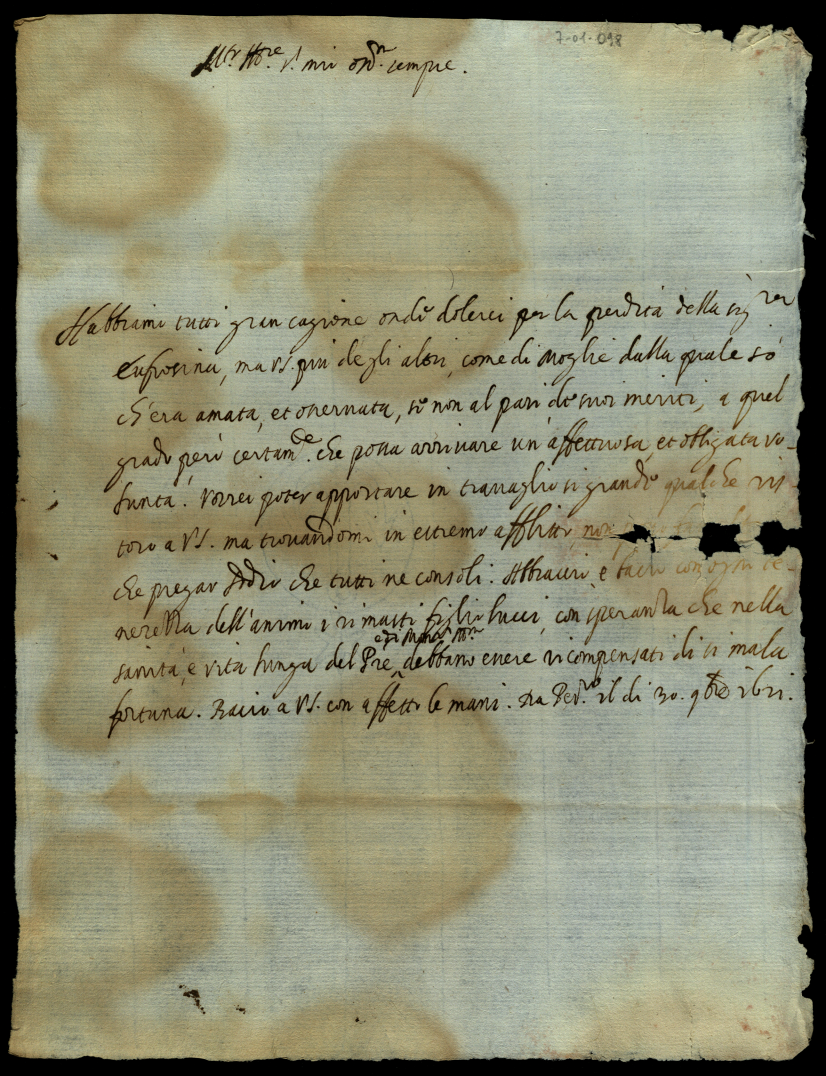 7-01-098
Ill.re Sig.re S.r mio oss.mo sempre.
Habbiamo tutti gran cagione onde dolerci per la perdita della sig.ra
Eufrosina, ma VS. più degli altri, come di Moglie dalla quale sò
ch'era amata, et osservata, se non al pari de suoi meriti, a quel
grado però certam.te che possa arrivare un'affettuosa, et obligata vo-
luntà. Vorrei poter apportare in travaglio si grande qualche ris-
toro a VS. ma trovandomi in estremo afflitto non
che pregar Iddio che tutti ne consoli. Abbracio e bacio con ogni te-
nerezza dell'animo i rimasti figliolucci, con speranza che nella
e di Mona
sanità, e vita lunga del Pre, debbano essere ricompensati di si mala
fortuna. Bacio a VS. con affetto le mani. Da Ped.o il di 30. 9bre 1621.